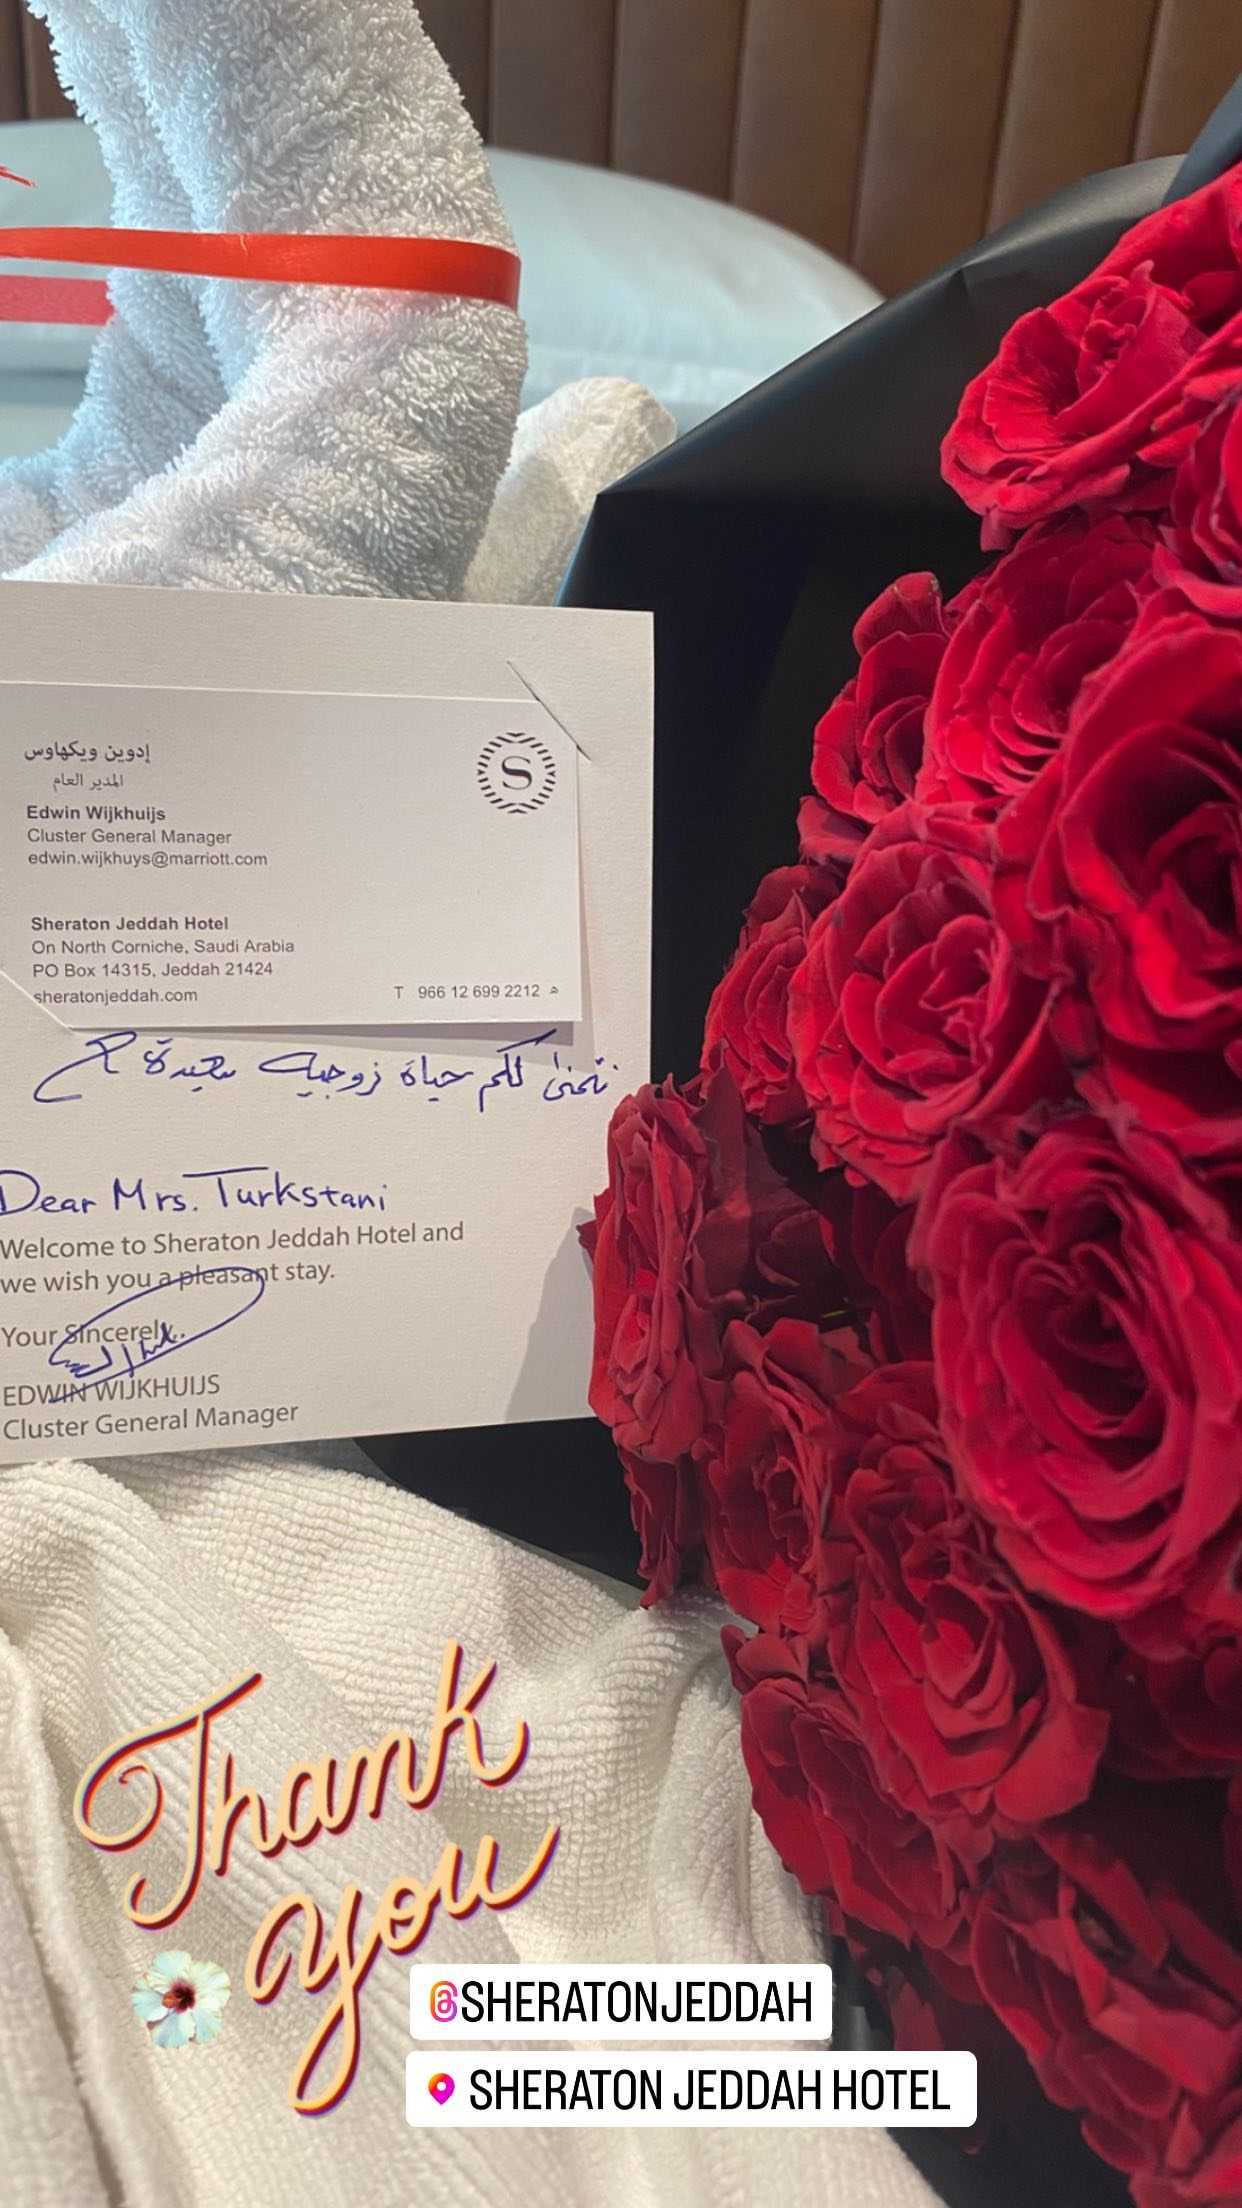 إدوين ويكهاوس
المدير العام
Edwin Wijkhuijs
Cluster General Manager
edwin.wijkhuys@marriott.com
S
Sheraton Jeddah Hotel
On North Corniche, Saudi Arabia
PO Box 14315, Jeddah 21424
sheratonjeddah.com
T 966 12 699 2212 ھ
نتمنى لكم حياة زوجية سعيدة
Dear Mrs. Turkstani
Welcome to Sheraton Jeddah Hotel and
we wish you a pleasant stay.
Your Sincerely,
EDWIN WIJKHUIJS
Cluster General Manager
Thank
you
@SHERATONJEDDAH
SHERATON JEDDAH HOTEL